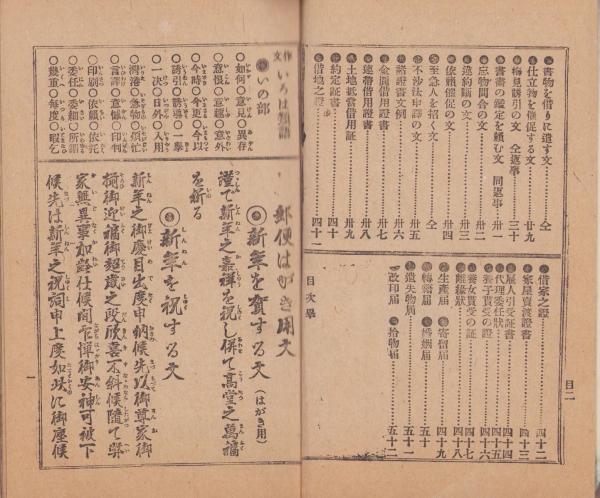 書物を借りに遣す文……仝
仕立物を催促する文……廿九
梅見誘引の文 仝返事……三十
書畫の鑑定を頼む文 同返事……卅一
忘物問合の文……卅二
違約詫の文……卅三
依頼催促の文……卅四
至急人を招く文……仝
不沙汰申譯の文……卅五
諸證書文例……卅六
金圓借用證書……卅七
連帶借用證書……卅八
土地抵當借用証……卅九
約定証書……四十
借地之證……四十一
目二
借家之證……四十二
家屋賣渡證書……四十三
雇人引受証書……四十四
代理委任狀……四十五
養子貰受の証……四十六
養女貰受の証……四十七
離縁狀……四十八
生産届 寄留届……四十九
轉籍届 婚姻届……五十
遺失物届……五十一
改印届 拾物届……五十二
目次畢
作文いろは類語
いの部
○如何○意見○異存
○意恨○意趣○意外
○今時○今更○今以
○誘引○誘導○一擧
○一決○日外○入用
○言譯○意味○印刊
○印刷○依頼○依托
○委任○委細○所謂
○幾重○毎度○暇乞
郵便はがき用文
新年を賀する文(はがき用)
謹て新年之嘉祥を祝し併て高堂之萬福
を祈る
新年を祝する文
新年之御慶目出度申納候先以御尊家御
揃御迎福御超歳之段欣喜不斜候隨て弊
家無異事加齢仕候間乍憚御安神可被下
候先は新年之祝詞申上度如此に御座候
一